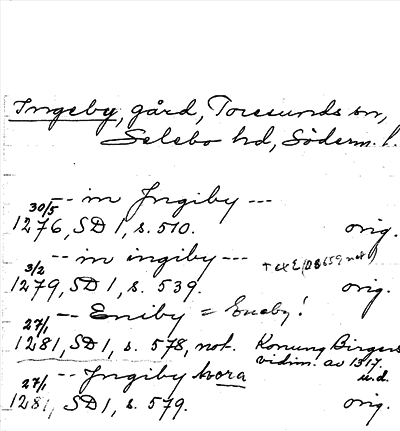 Ingeby, gård, Toresunds sn,
Selebo hd, Söderm. l.
-- in Jngiby ---
30/5
1276, SD 1, s. 510. orig.
-- in ingiby ---
3/2
1279, SD 1, s. 539. orig.
-- Eniby = Eneby!
27/1
1281, SD 1, s. 578, not. Konung Birgers
vidim. av 1317.
u.d.
-- Jngiby hvora
27/1
1281, SD 1, s. 579. orig.